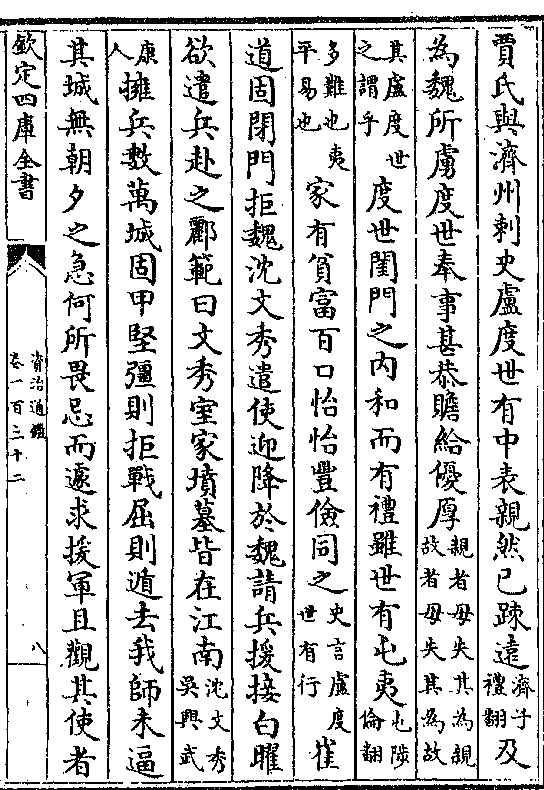 賈氏與濟州刺史盧度世有中表親然已疎遠濟子禮翻及
為魏所虜度世奉事甚恭贍給優厚親者毋失其為親故者毋失其為故
其盧度世之謂乎度世閨門之内和而有禮雖世有屯夷屯陟倫翻
多難也夷平易也家有貧富百口怡怡豐儉同之史言盧度世有行崔
道固閉門拒魏沈文秀遣使迎降於魏請兵援接白曜
欲遣兵赴之酈範曰文秀室家墳墓皆在江南沈文秀吳興武
康人擁兵數萬城固甲堅彊則拒戰屈則遁去我師未逼
其城無朝夕之急何所畏忌而遽求援軍且觀其使者
欽定四庫全書
資治通鑑
卷一百三十二
八